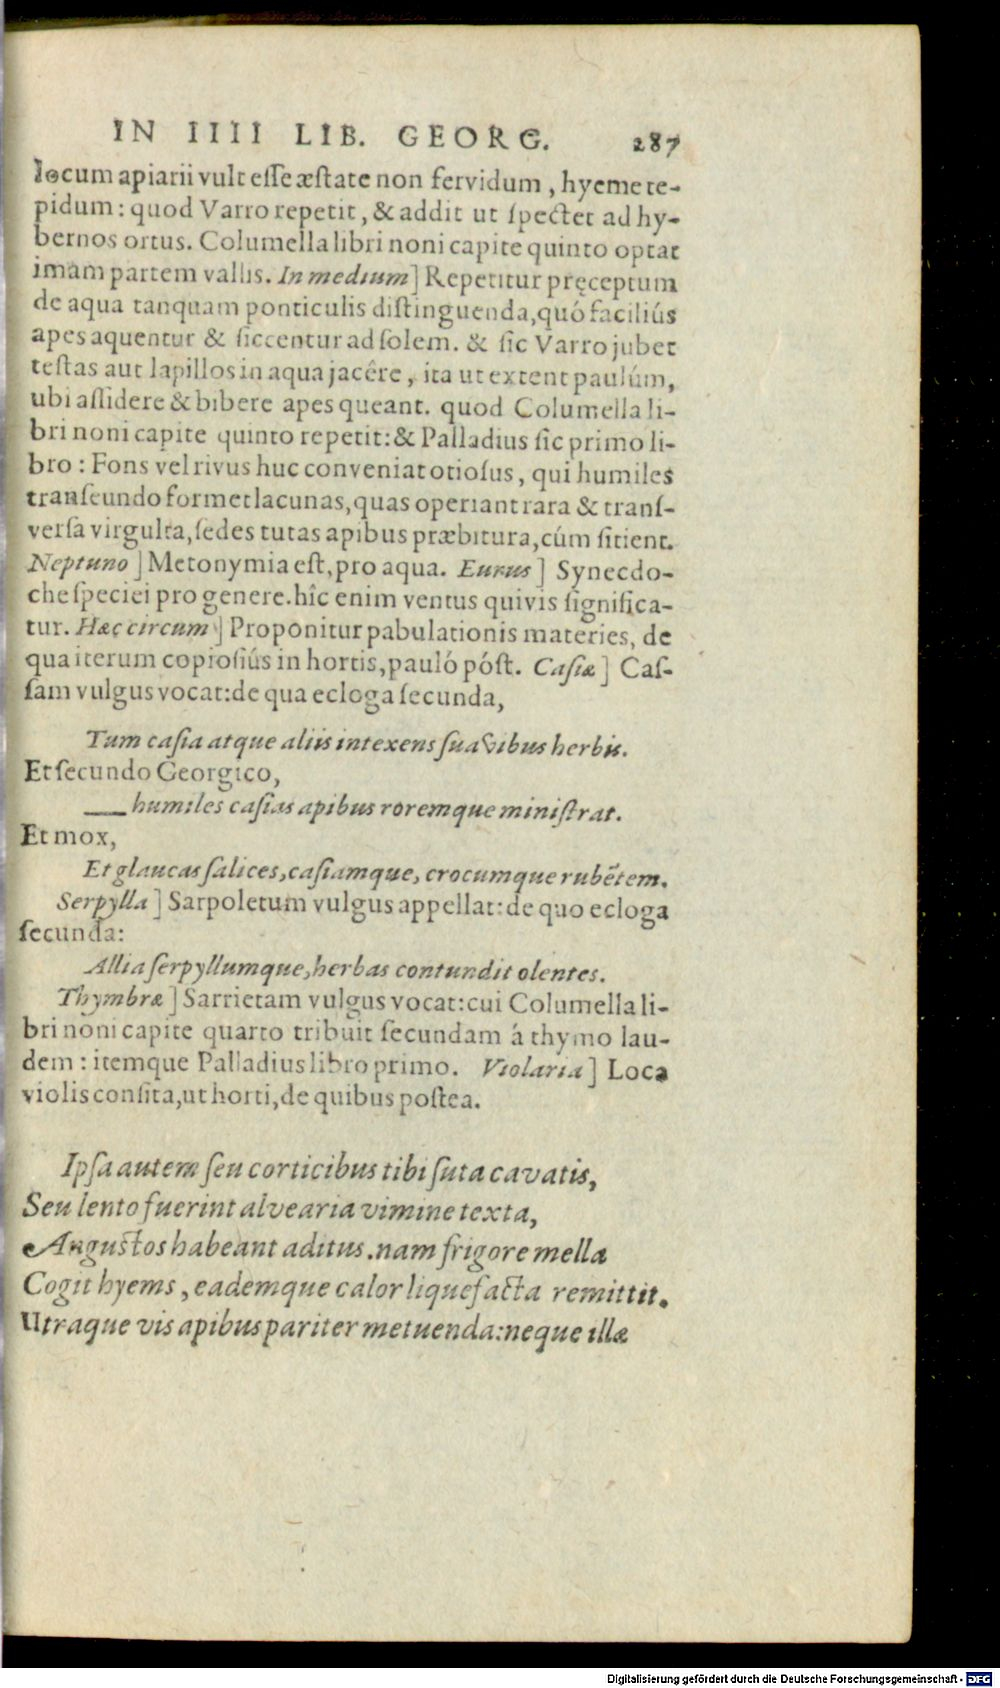 IN IIII LIB. GEORG. 287
locum apiarii vult eſſe æſtate non fervidum, hyeme te-
pidum: quod Varro repetit, & addit ut ſpectet ad hy-
bernos ortus. Columella libri noni capite quinto optat
imam partem vallis. In medium] Repetitur pręceptum
de aqua tanquam ponticulis diſtinguenda, quó faciliús
apes aquentur & ſiccentur ad ſolem. & ſic Varro jubet
teſtas aut lapillos in aqua jacêre, ita ut extent paulúm,
ubi aſſidere & bibere apes queant. quod Columella li-
bri noni capite quinto repetit: & Palladius ſic primo li-
bro: Fons vel rivus huc conveniat otioſus, qui humiles
tranſeundo formet lacunas, quas operiant rara & tranſ-
verſa virgulta, ſedes tutas apibus præbitura, cúm ſitient.
Neptuno] Metonymia eſt, pro aqua. Eurus] Synecdo-
che ſpeciei pro genere. hîc enim ventus quivis ſignifica-
tur. Hæc circum] Proponitur pabulationis materies, de
qua iterum copioſiús in hortis, pauló póſt. Caſiæ] Caſ-
ſam vulgus vocat: de qua ecloga ſecunda,
Tum caſia atque aliis intexens ſuavibus herbis.
Et ſecundo Georgico,
—— humiles caſias apibus roremque miniſtrat.
Et mox,
Et glaucas ſalices, caſiamque, crocumque rubētem.
Serpylla] Sarpoletum vulgus appellat: de quo ecloga
ſecunda:
Allia ſerpyllumque, herbas contundit olentes.
Thymbræ] Sarrietam vulgus vocat: cui Columella li-
bri noni capite quarto tribuit ſecundam á thymo lau-
dem: itemque Palladius libro primo. Violaria] Loca
violis conſita, ut horti, de quibus poſtea.
Ipſa autem ſeu corticibus tibi ſuta cavatis,
Seu lento fuerint alvearia vimine texta,
Anguſtos habeant aditus. nam frigore mella
Cogit hyems, eademque calor liquefacta remittit.
Utraque vis apibus pariter metuenda: neque illæ
Digitalisierung gefördert durch die Deutsche Forschungsgemeinschaft - DFG